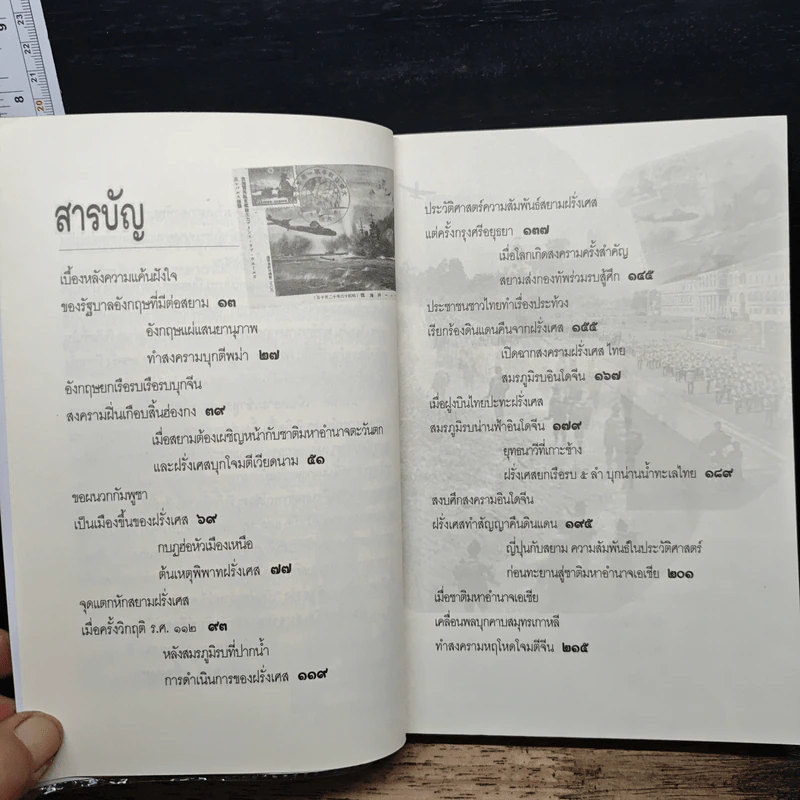 สารบัญ
เบื้องหลังความแค้นฝังใจ
ของรัฐบาลอังกฤษที่มีต่อสยาม ๑๓
อังกฤษแผ่แสนยานุภาพ
ทำสงครามบุกตีพม่า ๒๗
อังกฤษยกเรือรบเรือรบบุกจีน
สงครามฝิ่นเกือบสิ้นฮ่องกง ๓๙
เมื่อสยามต้องเผชิญหน้ากับชาติมหาอำนาจตะวันตก
และฝรั่งเศสบุกโจมตีเวียดนาม ๕๑
ขอผนวกกัมพูชา
เป็นเมืองขึ้นของฝรั่งเศส ๖๙
กบฏฮ่อหัวเมืองเหนือ
ต้นเหตุพิพาทฝรั่งเศส ๗๗
จุดแตกหักสยามฝรั่งเศส
เมื่อครั้งวิกฤติ ร.ศ. ๑๑๒ ๙๓
หลังสมรภูมิรบที่ปากน้ำ
การดำเนินการของฝรั่งเศส ๑๑๙
ประวัติศาสตร์ความสัมพันธ์สยามฝรั่งเศส
แต่ครั้งกรุงศรีอยุธยา ๑๓๗
เมื่อโลกเกิดสงครามครั้งสำคัญ
สยามส่งกองทัพร่วมรบสู้ศึก ๑๔๕
ประชาชนชาวไทยทำเรื่องประท้วง
เรียกร้องดินแดนคืนจากฝรั่งเศส ๑๕๕
เปิดฉากสงครามฝรั่งเศส ไทย
สมรภูมิรบอินโดจีน ๑๖๗
เมื่อฝูงบินไทยปะทะฝรั่งเศส
สมรภูมิรบน่านฟ้าอินโดจีน ๑๗๙
ยุทธนาวีที่เกาะช้าง
ฝรั่งเศสยกเรือรบ ๕ ลำ บุกน่านน้ำทะเลไทย ๑๘๙
สงบศึกสงครามอินโดจีน
ฝรั่งเศสทำสัญญาคืนดินแดน ๑๙๕
ญี่ปุ่นกับสยาม ความสัมพันธ์ในประวัติศาสตร์
ก่อนทะยานสู่ชาติมหาอำนาจเอเชีย ๒๐๑
เมื่อชาติมหาอำนาจเอเชีย
เคลื่อนพลบุกคาบสมุทรเกาหลี
ทำสงครามหฤโหดโจมตีจีน ๒๑๕
8
9
20
21
22
23